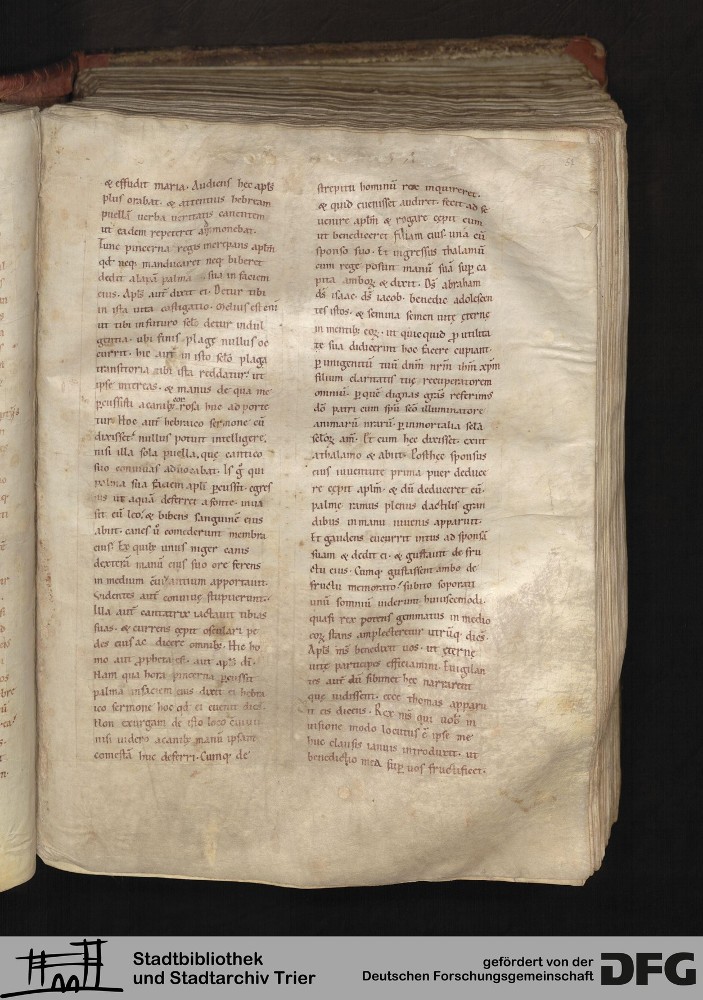 & effudit maria. Audiens hec apl̃s
plus orabat. & attentius hebream
puellã uerba ueritatis canentem
ut eadem repeteret ammonebat.
Tunc pincerna regis increpans apl̃m
qđ neq; manducaret neq; biberet
dedit alapã palma sua in faciem
eius. Apl̃s aut̃ dixit ei. Detur tibi
in ista uita castigatio. Melius est eni
ut tibi in futuro sc̃lo detur indul
gentia. ubi finis plagę nullus oc
currit. hic aut̃ in isto sc̃lo plaga
transitoria tibi ista reddatur. ut
ipse intereas. & manus de qua me
ꝑcussisti a canib; corrosa huc adporte
tur. Hoc aut̃ hebraico sermone cũ
dixisset. nullus potuit intelligere.
nisi illa sola puella. que cantico
suo conuiuas aduocabat. Is g̃ qui
palma sua faciem apl̃i ꝑcussit. egres
sus ut aquã deferret a fonte. inua
sit eũ leo. & bibens sanguinẽ eius
abiit. canes ů comederunt membra
eius. Ex quib; unus niger canis
dexterã manũ eius suo ore ferens
in medium cõuiuantium apportauit.
Videntes aut̃ conuiuę stupuerunt.
Illa aut̃ cantatrix iactauit tibias
suas. & currens cępit osculari pe
des eius ac dicere omnib;. Hic ho
mo aut ꝓpheta est. aut apl̃s dĩ.
Nam qua hora pincerna ꝑcussit
palma in faciem eius dixit ei hebra
ico sermone hoc qđ ei euenit dicens.
Non exurgam de isto loco cõuiuii
nisi uidero a canib; manũ ipsam
comestã huc deferri. Cumq; de
55
strepitu hominũ rex inquireret.
& quid euenisset audiret. fecit ad se
uenire apl̃m & rogare cępit eum
ut benediceret filiam eius. una cũ
sponso suo. Et ingressus thalamũ
cum rege posuit manũ suã suꝑ ca
pita amboꝝ & dixit. Ds̃ abraham
ds̃ isaac. ds̃ iacob. benedic adolescen
tes istos. & semina semen uitę ęternę
in mentib; eoꝝ. ut quicquid ꝓ utilita
te sua didicerint hoc facere cupiant.
ꝑ unigenitũ tuũ dnm̃ nr̃m ihm̃ xp̃m
filium claritatis tuę recuperatorem
omniũ. ꝑ quẽ dignas gr̃as referim̃
dõ patri cum sp̃u sc̃o illuminatore
animarũ nr̃arũ. ꝑ inmortalia sc̃la
sc̃loꝝ. am̃. Et cum hec dixisset. exiit
a thalamo & abiit. Posthec sponsus
eius iuuentute prima puer deduce
re cępit apl̃m. & dũ deduceret eũ.
palmę ramus plenus dactilis gran
dibus in manu iuuenis apparuit.
Et gaudens cucurrit intus ad sponsã
suam & dedit ei. & gustauit de fru
ctu eius. Cumq; gustassent ambo de
fructu memorato. subito soporati
unũ somniũ uiderunt huiuscemodi.
quasi rex potens gemmatus in medio
eoꝝ stans amplecteretur utrũq; dicẽs.
Apl̃s m̃s benedixit uos. ut ęternę
uitę participes efficiamini. Euigilan
tes aut̃ dũ sibimet hec narrarent
que uidissent. ecce thomas apparu
it eis dicens. Rex m̃s qui uob̃ in
uisione modo locutus ẽ ipse me
huc clausis ianuis introduxit. ut
benedictio mea suꝑ uos fructificet.
Stadtbibliothek
und Stadtarchiv Trier
gefördert von der
Deutschen Forschungsgemeinschaft
DFG